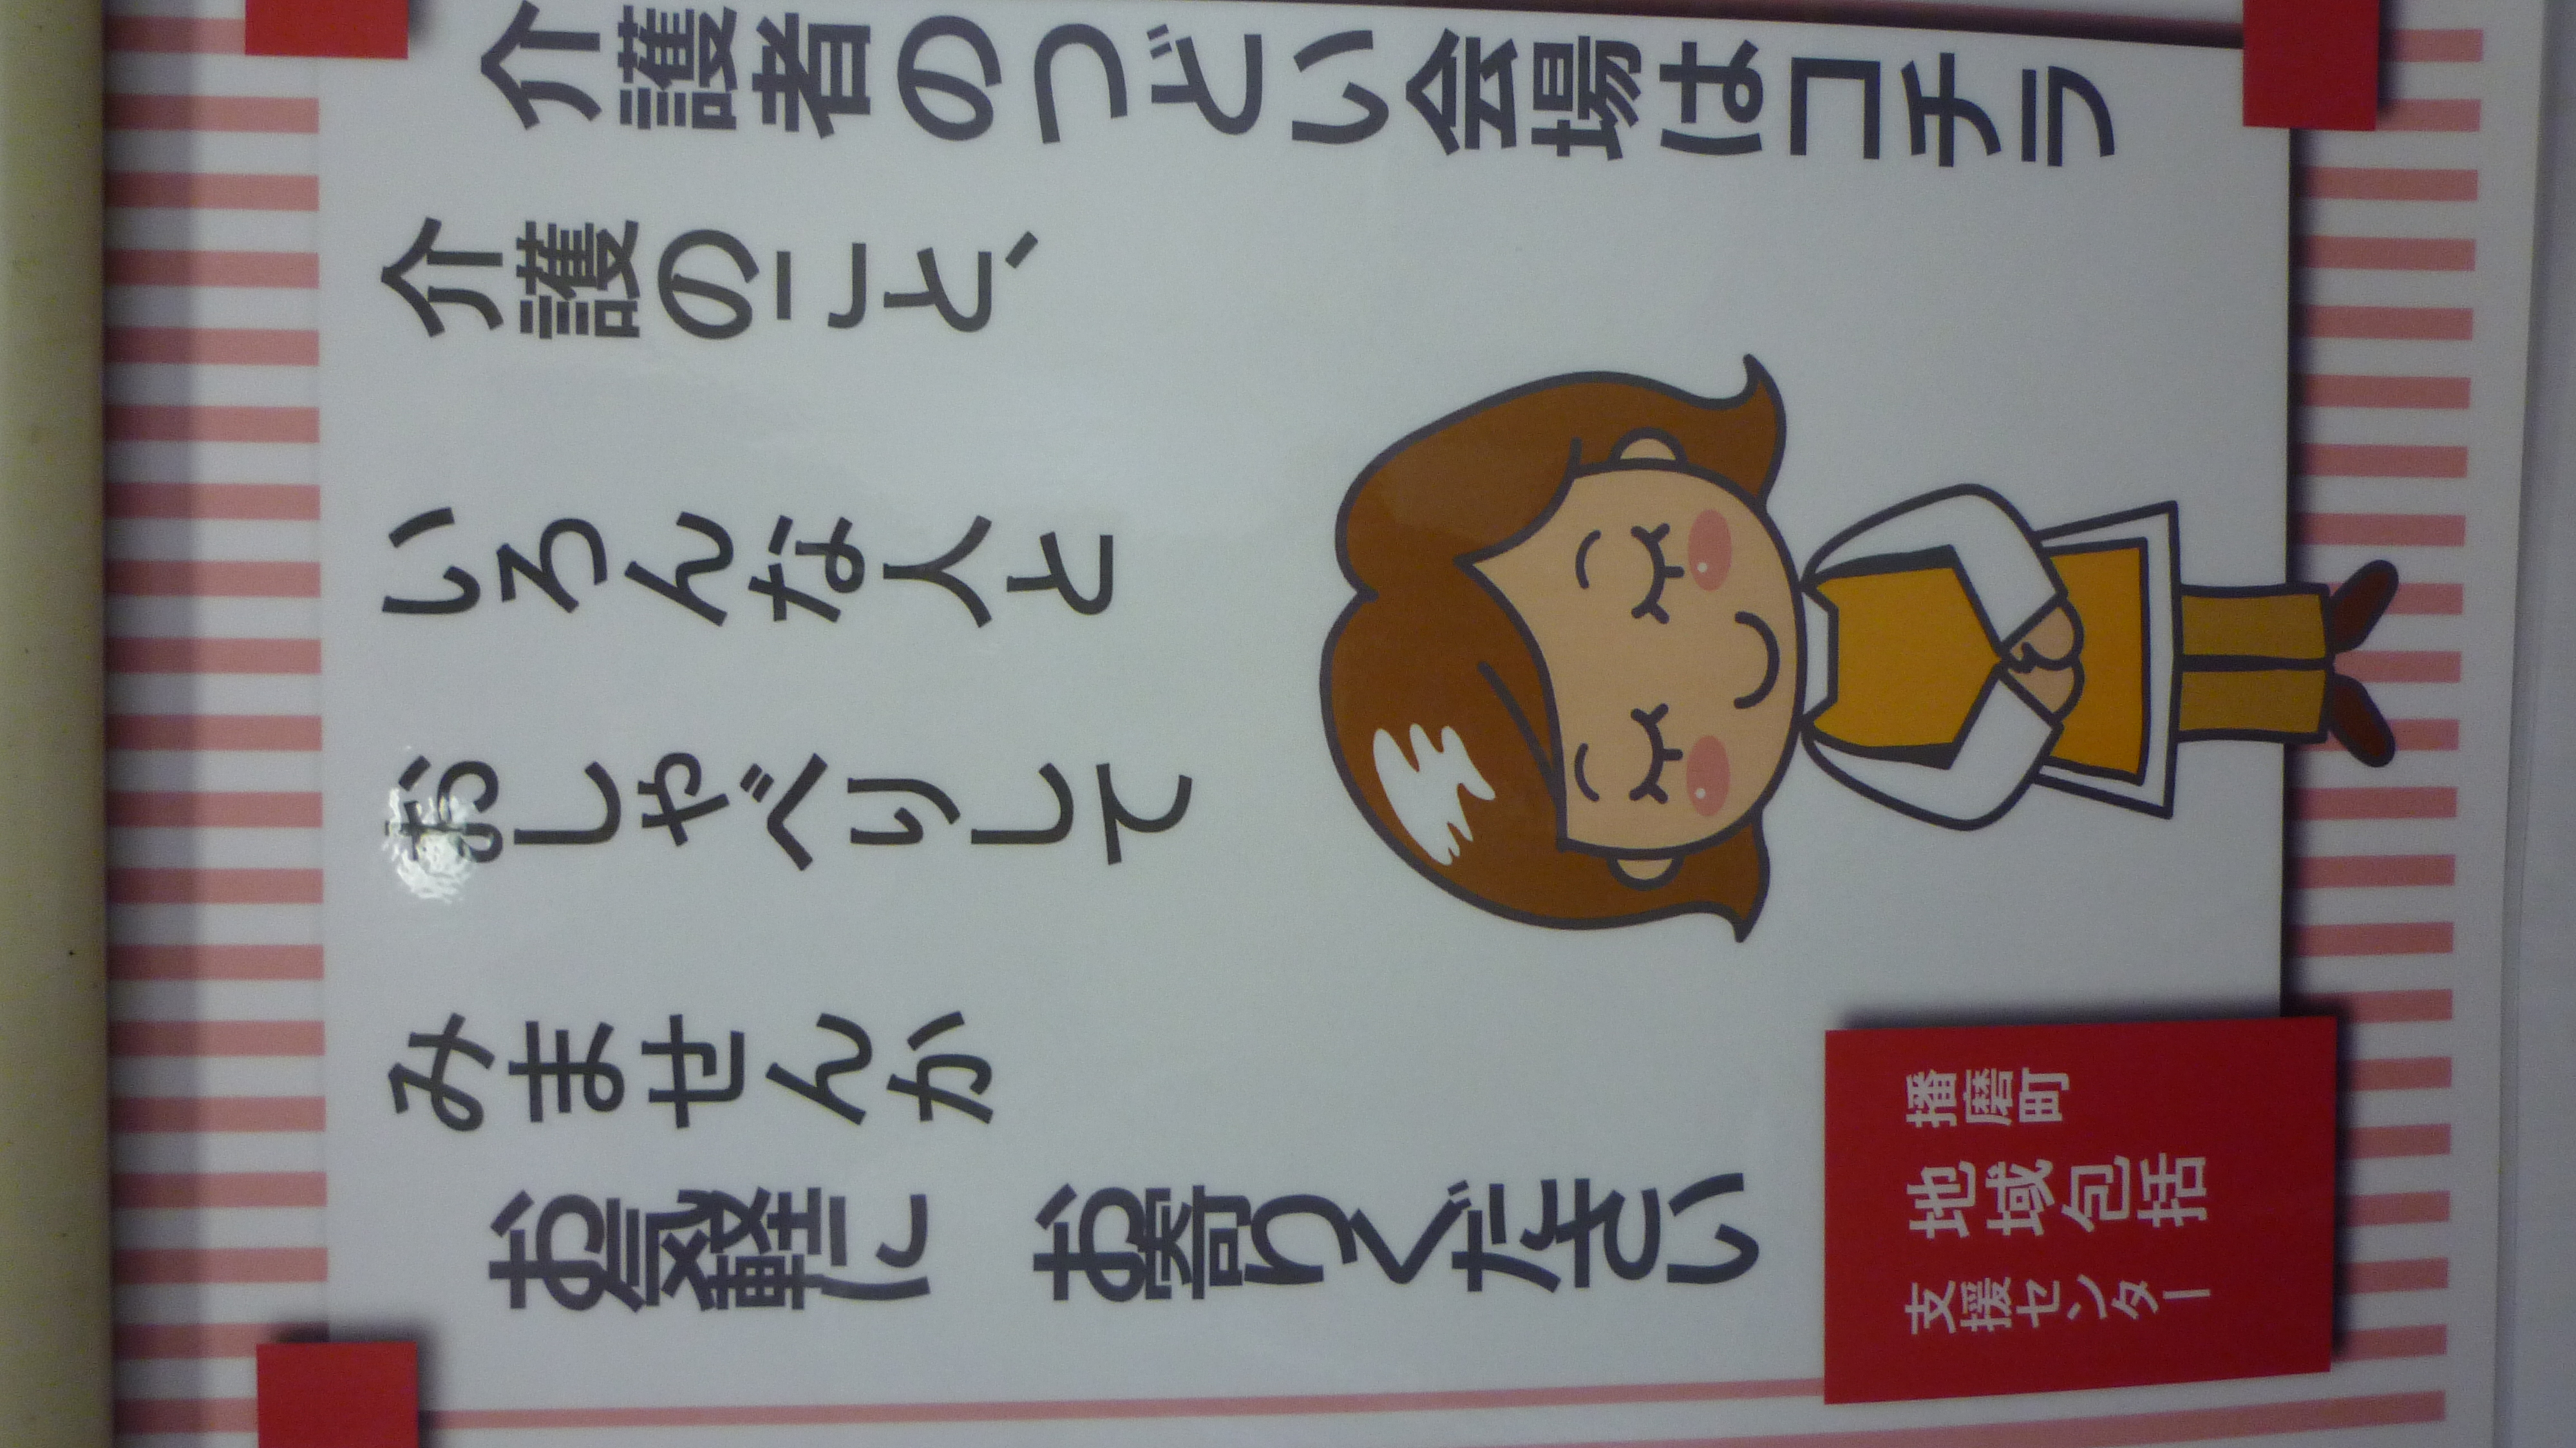 介護者のつどい会場はコチラ
介護のこと、
いろんな人と
おしゃべりして
みませんか
お気軽に お寄りください
播磨町
地域包括
支援センター